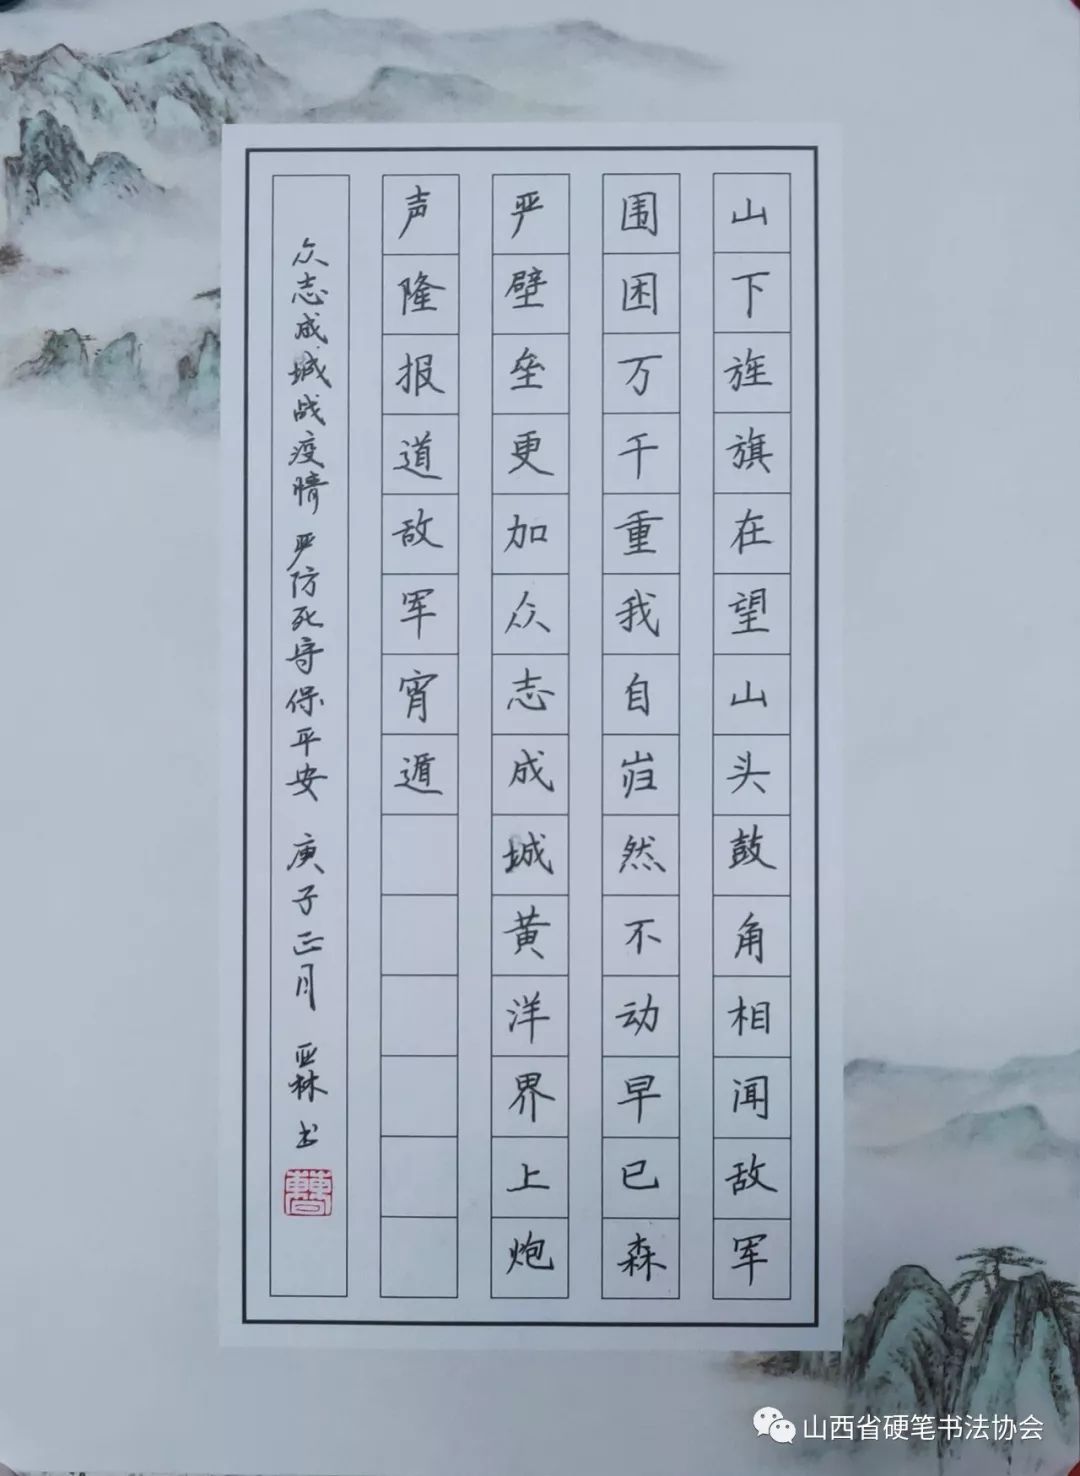 山下旌旗在望山头鼓角相闻敌军
围困万千重我自岿然不动早已森
严壁垒更加众志成城黄洋界上炮
声隆报道敌军宵遁
众志成城战疫情 严防死守保平安 庚子正月 亚林书
山西省硬笔书法协会